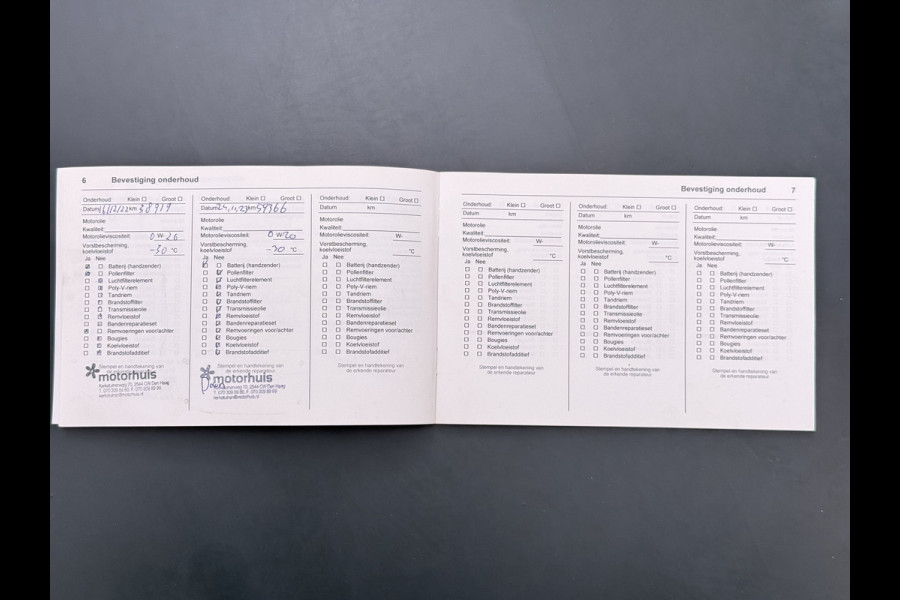 6 Bevestiging onderhoud
Onderhoud: Klein ☐ Groot ☐
Datum 16/12/22 km 38919
Motorolie
Kwaliteit:
Motorolieviscositeit: 0 W- 20
Vorstbescherming,
koelvloeistof -30 °C
Ja Nee
Batterij (handzender)
Pollenfilter
Luchtfilterelement
Poly-V-riem
Tandriem
Brandstoffilter
Transmissieolie
Remvloeistof
Bandenreparatieset
Remvoeringen voor/achter
Bougies
Koelvloeistof
Brandstofadditief
Stempel en handtekening van
de erkende reparateur
motorhuis
Onderhoud: Klein ☐ Groot ☐
Datum km 59366
Motorolie
Kwaliteit:
Motorolieviscositeit: 0 W- 20
Vorstbescherming,
koelvloeistof °C
Ja Nee
Batterij (handzender)
Pollenfilter
Luchtfilterelement
Poly-V-riem
Tandriem
Brandstoffilter
Transmissieolie
Remvloeistof
Bandenreparatieset
Remvoeringen voor/achter
Bougies
Koelvloeistof
Brandstofadditief
Stempel en handtekening van
de erkende reparateur
motorhuis
Onderhoud: Klein ☐ Groot ☐
Datum km
Motorolie
Kwaliteit:
Motorolieviscositeit: W-
Vorstbescherming,
koelvloeistof °C
Ja Nee
☐ ☐ Batterij (handzender)
☐ ☐ Pollenfilter
☐ ☐ Luchtfilterelement
☐ ☐ Poly-V-riem
☐ ☐ Tandriem
☐ ☐ Brandstoffilter
☐ ☐ Transmissieolie
☐ ☐ Remvloeistof
☐ ☐ Bandenreparatieset
☐ ☐ Remvoeringen voor/achter
☐ ☐ Bougies
☐ ☐ Koelvloeistof
☐ ☐ Brandstofadditief
Stempel en handtekening van
de erkende reparateur
Bevestiging onderhoud 7
Onderhoud: Klein ☐ Groot ☐
Datum km
Motorolie
Kwaliteit:
Motorolieviscositeit: W-
Vorstbescherming,
koelvloeistof °C
Ja Nee
☐ ☐ Batterij (handzender)
☐ ☐ Pollenfilter
☐ ☐ Luchtfilterelement
☐ ☐ Poly-V-riem
☐ ☐ Tandriem
☐ ☐ Brandstoffilter
☐ ☐ Transmissieolie
☐ ☐ Remvloeistof
☐ ☐ Bandenreparatieset
☐ ☐ Remvoeringen voor/achter
☐ ☐ Bougies
☐ ☐ Koelvloeistof
☐ ☐ Brandstofadditief
Stempel en handtekening van
de erkende reparateur
Onderhoud: Klein ☐ Groot ☐
Datum km
Motorolie
Kwaliteit:
Motorolieviscositeit: W-
Vorstbescherming,
koelvloeistof °C
Ja Nee
☐ ☐ Batterij (handzender)
☐ ☐ Pollenfilter
☐ ☐ Luchtfilterelement
☐ ☐ Poly-V-riem
☐ ☐ Tandriem
☐ ☐ Brandstoffilter
☐ ☐ Transmissieolie
☐ ☐ Remvloeistof
☐ ☐ Bandenreparatieset
☐ ☐ Remvoeringen voor/achter
☐ ☐ Bougies
☐ ☐ Koelvloeistof
☐ ☐ Brandstofadditief
Stempel en handtekening van
de erkende reparateur
Onderhoud: Klein ☐ Groot ☐
Datum km
Motorolie
Kwaliteit:
Motorolieviscositeit: W-
Vorstbescherming,
koelvloeistof °C
Ja Nee
☐ ☐ Batterij (handzender)
☐ ☐ Pollenfilter
☐ ☐ Luchtfilterelement
☐ ☐ Poly-V-riem
☐ ☐ Tandriem
☐ ☐ Brandstoffilter
☐ ☐ Transmissieolie
☐ ☐ Remvloeistof
☐ ☐ Bandenreparatieset
☐ ☐ Remvoeringen voor/achter
☐ ☐ Bougies
☐ ☐ Koelvloeistof
☐ ☐ Brandstofadditief
Stempel en handtekening van
de erkende reparateur